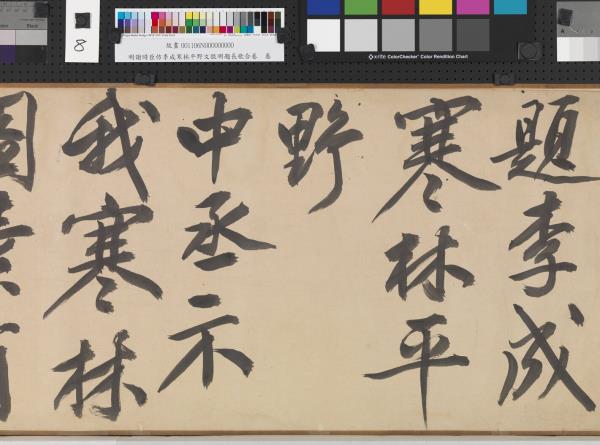 Black
8
故畫 001106N000000000
明謝時臣仿李成寒林平野文徵明題長歌合卷 卷
x-rite ColorChecker Color Rendition Chart
題李成
寒林平
野
中丞示
我寒林
圖